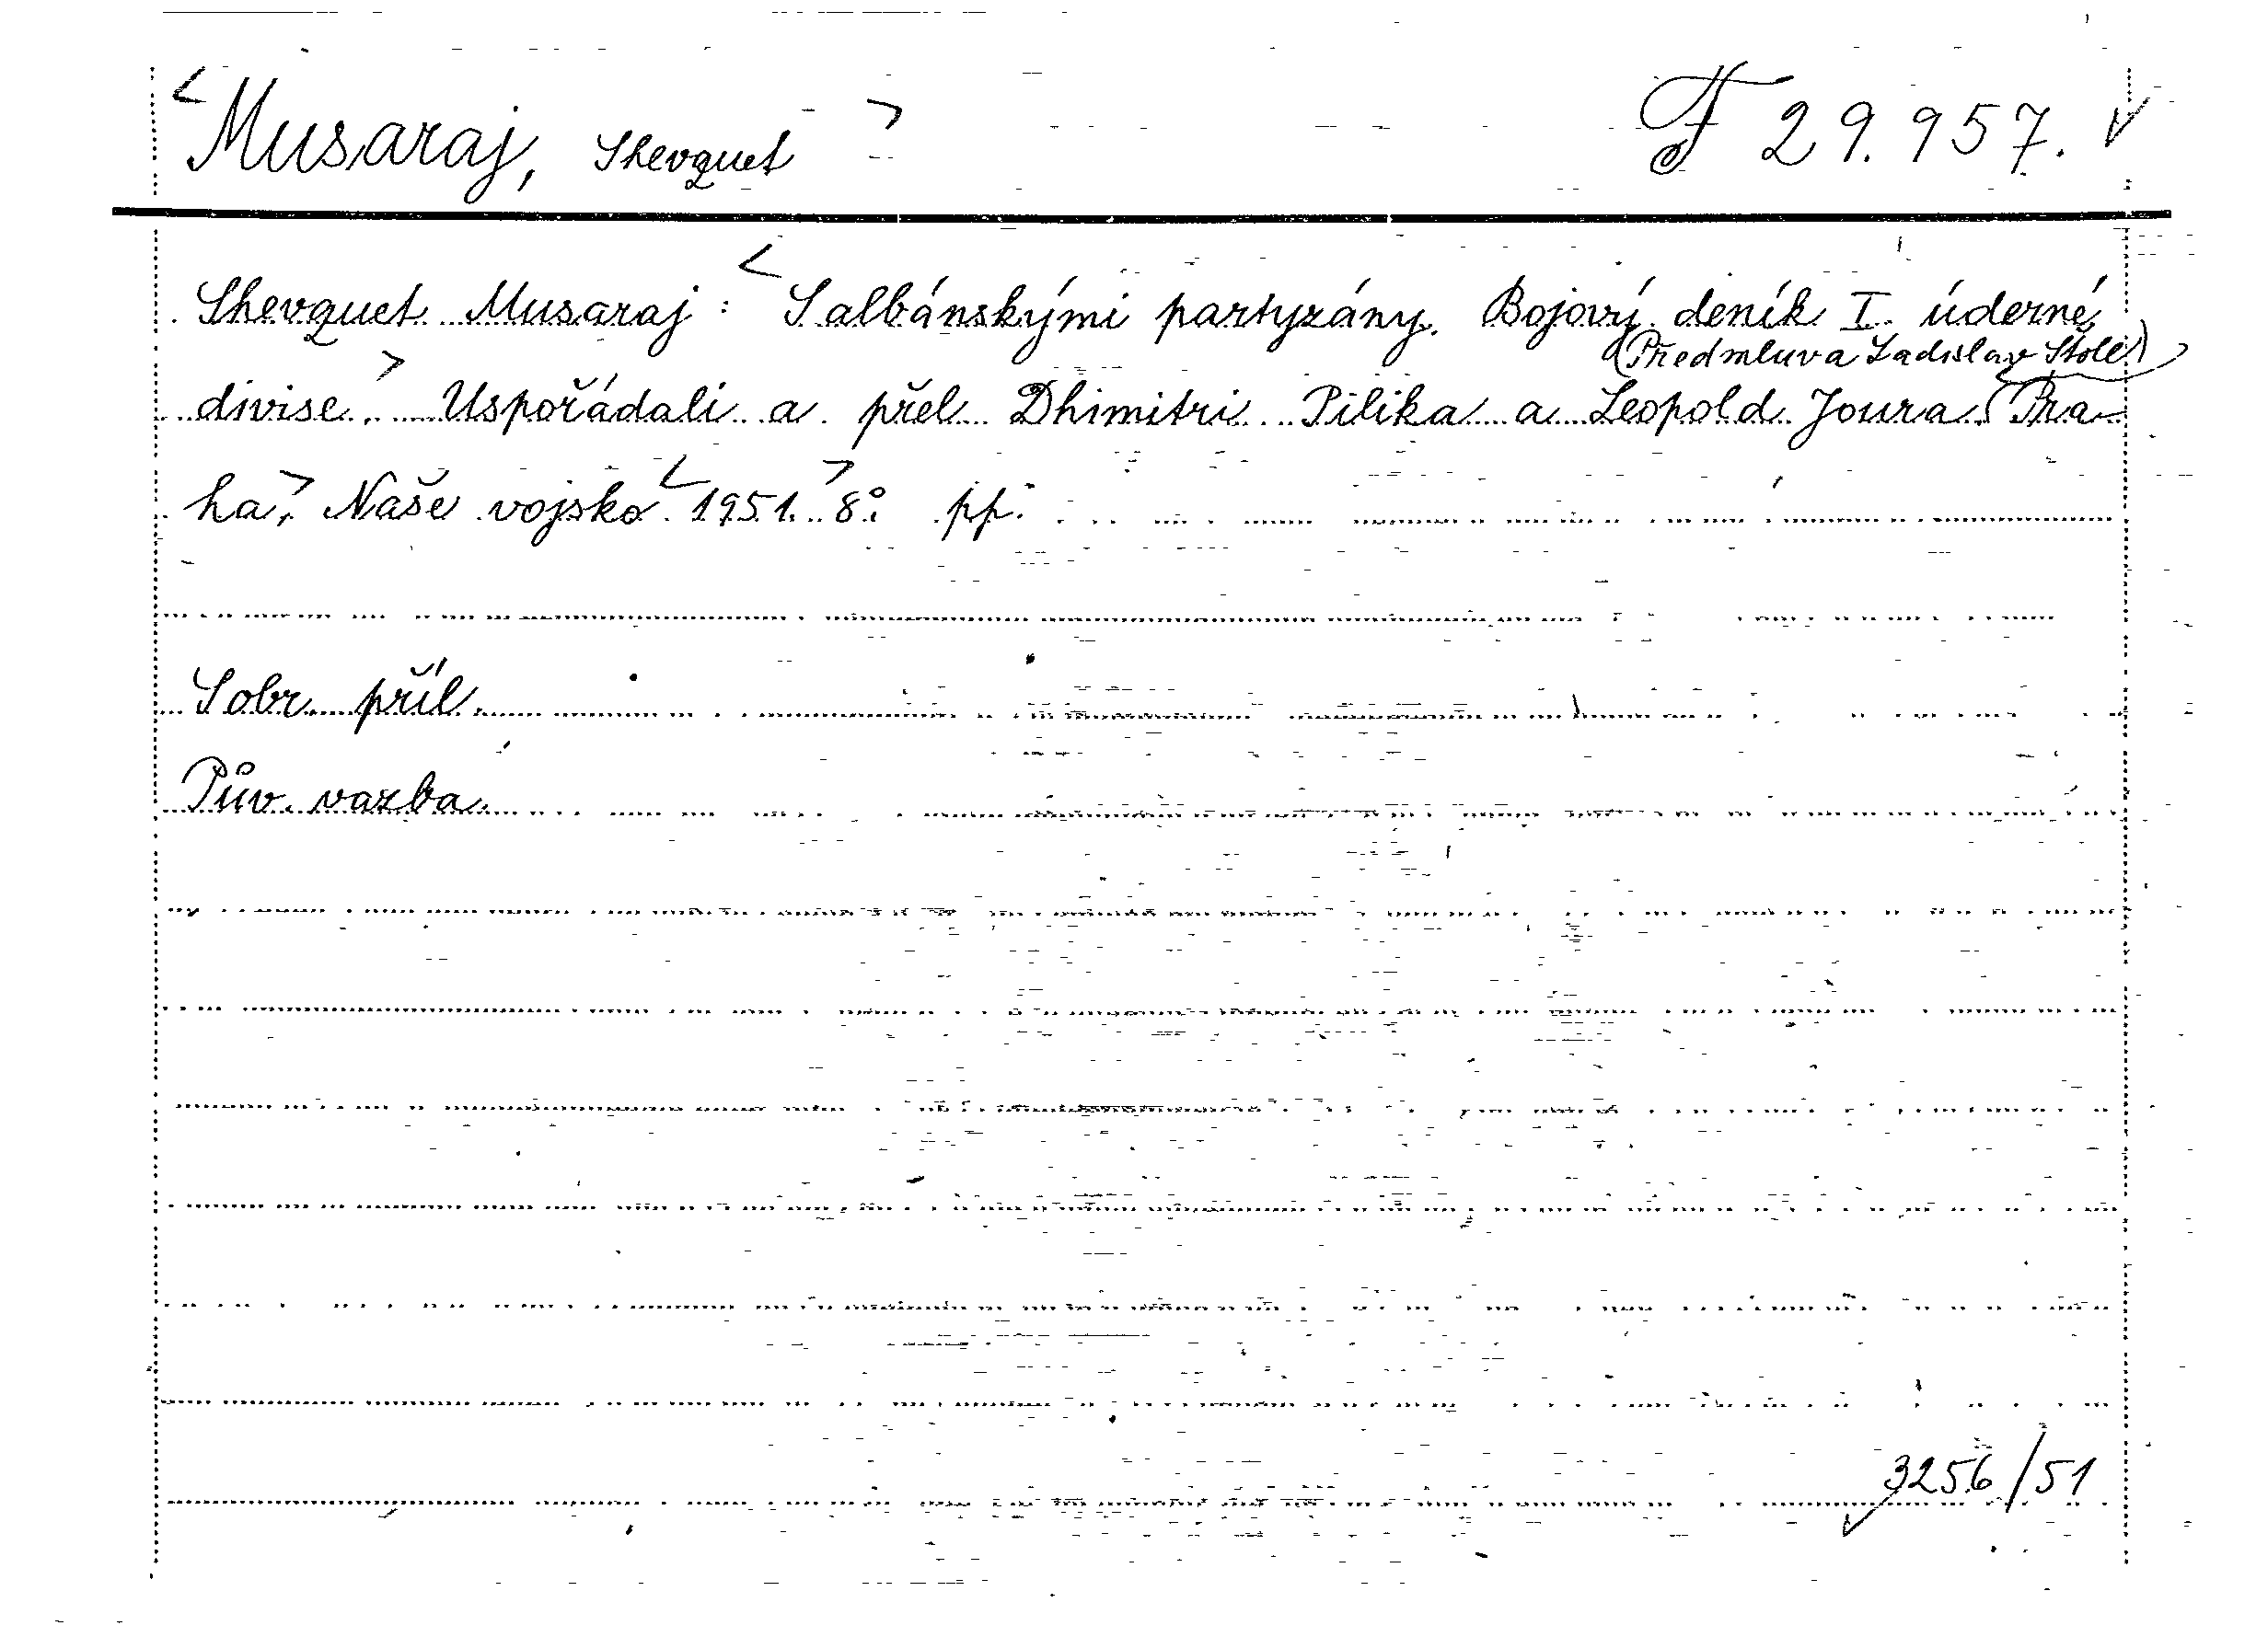 <Musaraj, Shevquet> F 29.957. √
Shevquet Musaraj: <S albánskými partyzány. Bojový deník I. úderné
(Předmluva Ladislav Štoll.)
divise.> Uspořádali a přel. Dhimitri Pilika a Leopold Joura. Pra-
ha>, Naše vojsko <1951.> 8° pp.
S obr. příl.
Pův. vazba.
3256/51